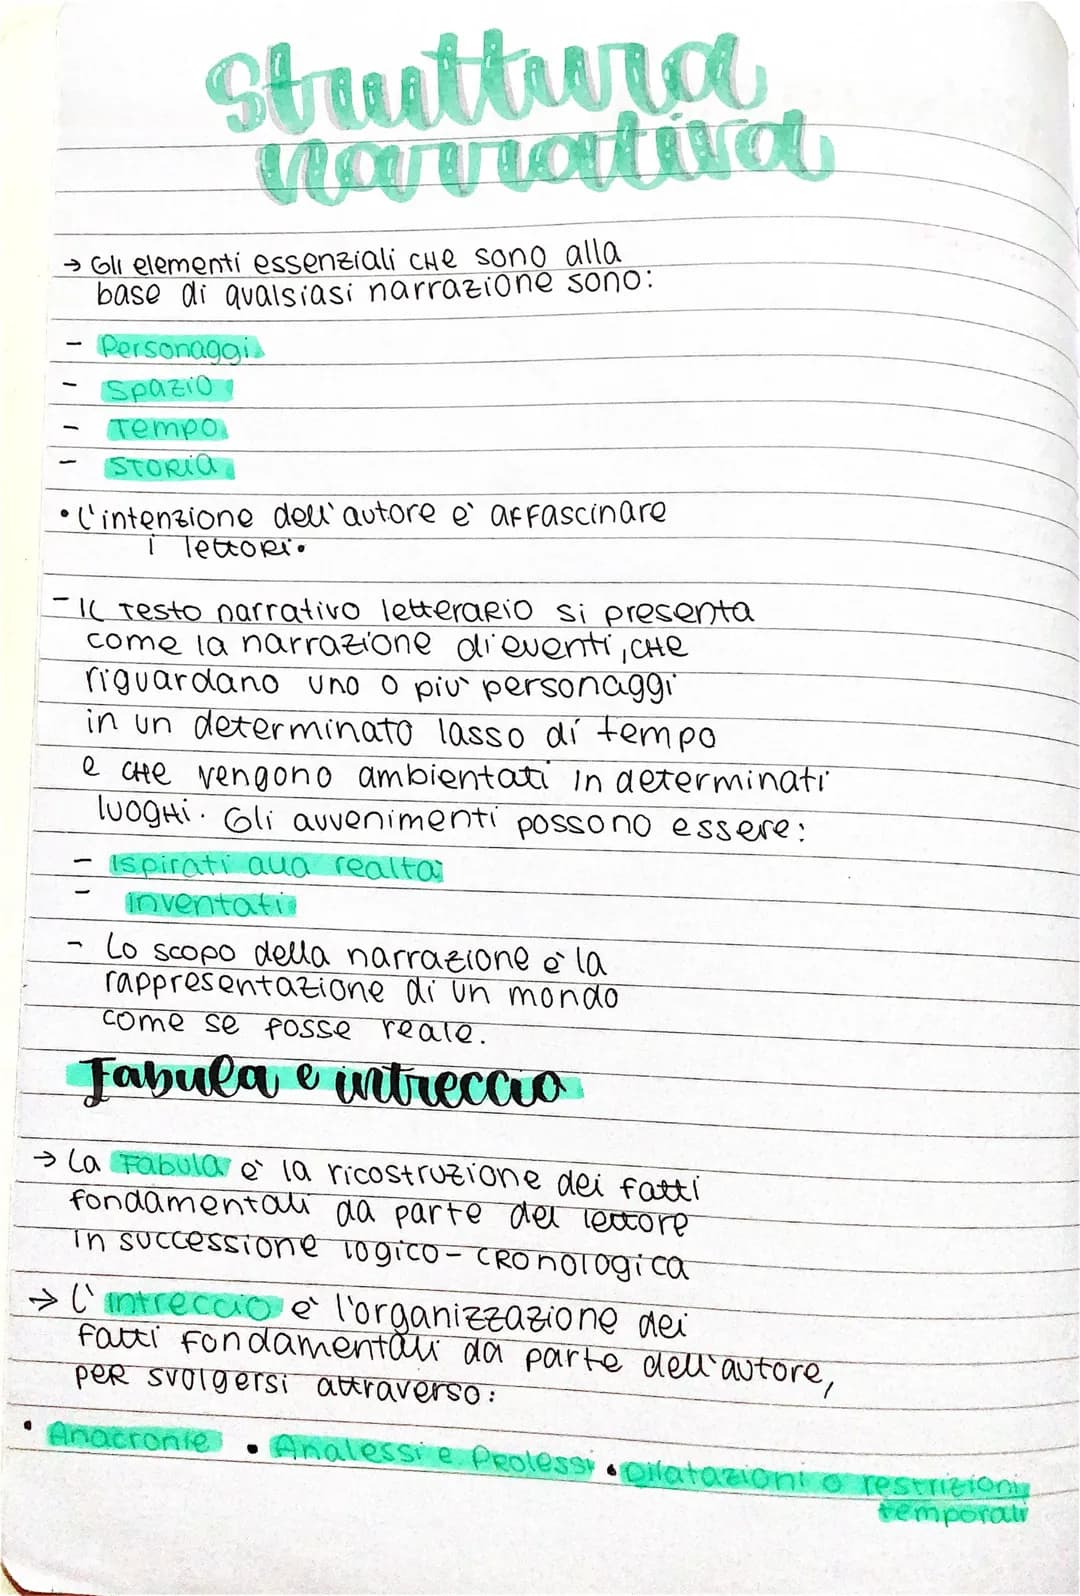 Struttura
narrativa
→ Gli elementi essenziali che sono alla
base di qualsiasi narrazione sono:
- Personaggi
- Spazio
- Tempo
- Storia
• L'intenzione dell'autore è affascinare
i lettori.
- Il testo narrativo letterario si presenta
come la narrazione di eventi, che
riguardano uno o più personaggi
in un determinato lasso di tempo
e che vengono ambientati in determinati
luoghi. Gli avvenimenti possono essere:
- Ispirati alla realtà
- Inventati
- Lo scopo della narrazione è la
rappresentazione di un mondo
come se fosse reale.
Fabula e intreccio
→ La Fabula è la ricostruzione dei fatti
fondamentali da parte del lettore
in successione logico-cronologica
→ L'intreccio è l'organizzazione dei
fatti fondamentali da parte dell'autore,
per svolgersi attraverso:
• Anacronie • Analessi e Prolessi • Dilatazioni o restrizioni
temporali